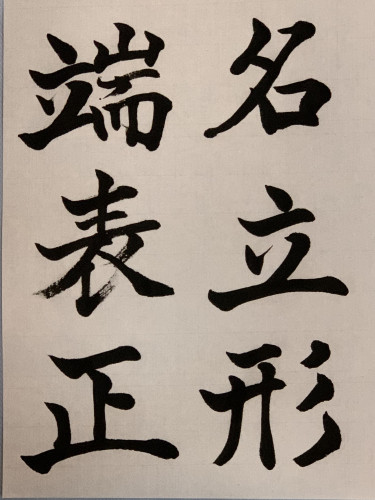 名立形
端表正